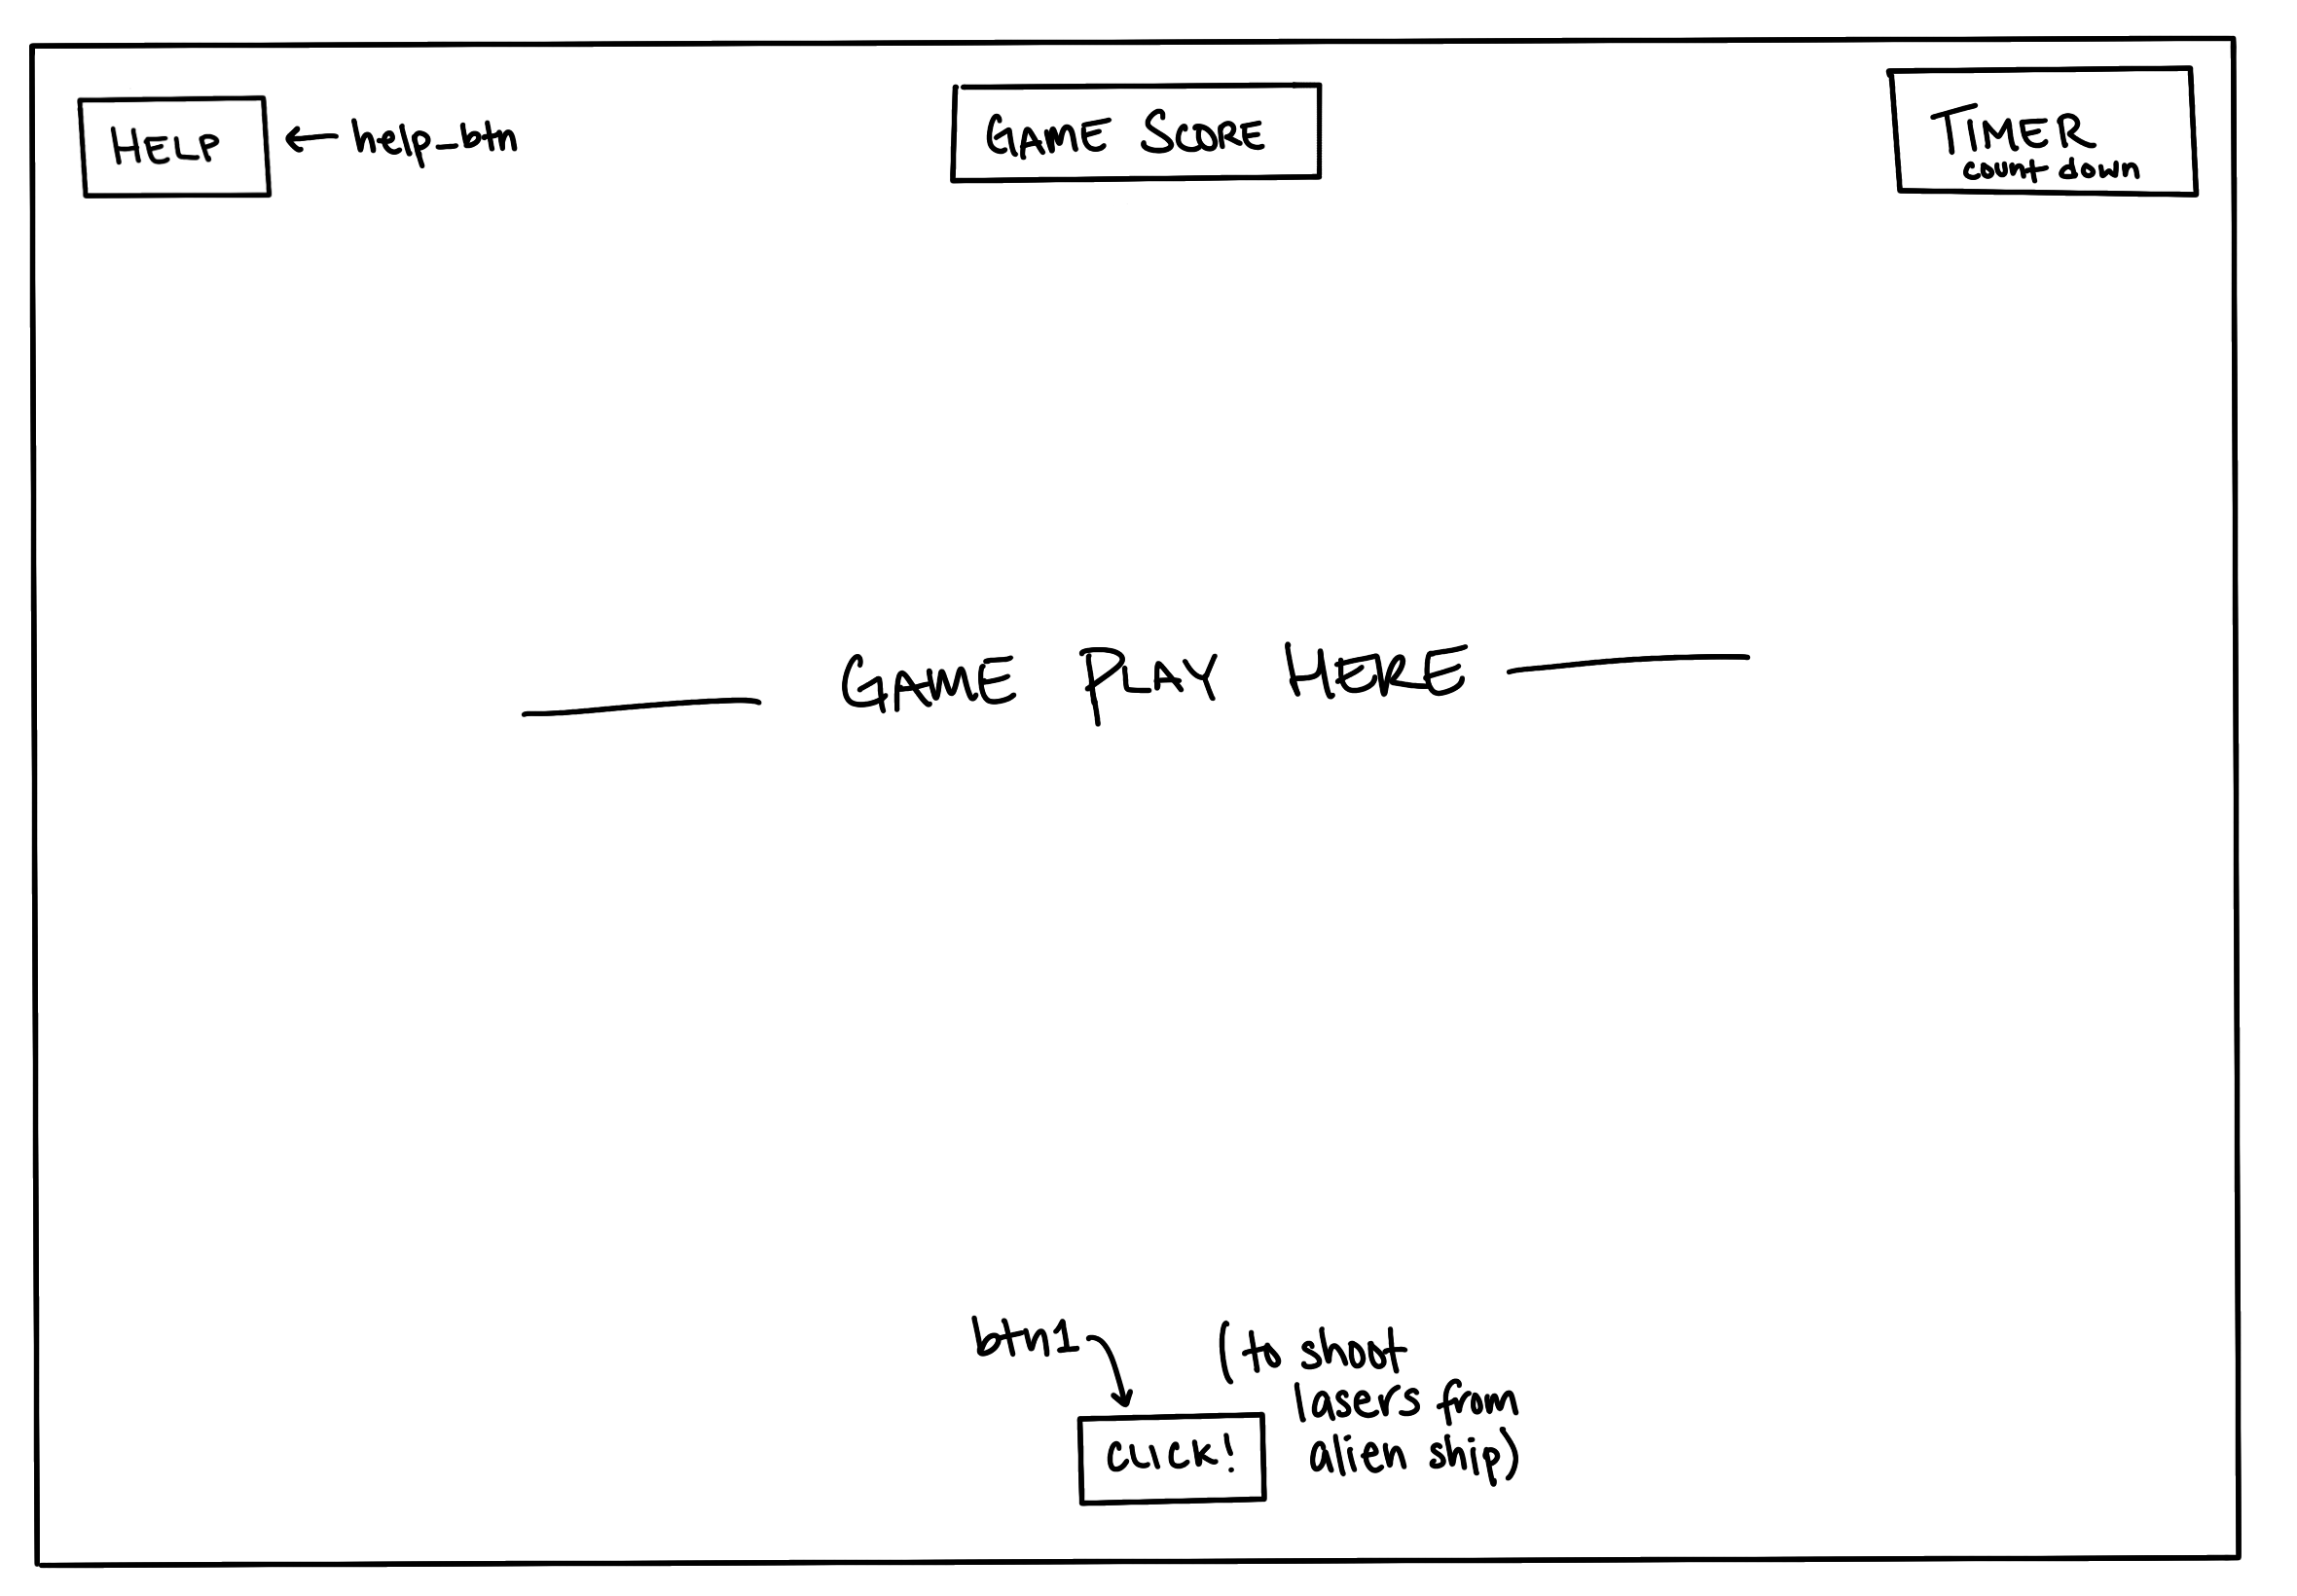 HELP
help_btn
GAME SCORE
TIMER
count down
GAME PLAY HERE
btn1
(to shoot
lasers from
alien ship)
CLICK!